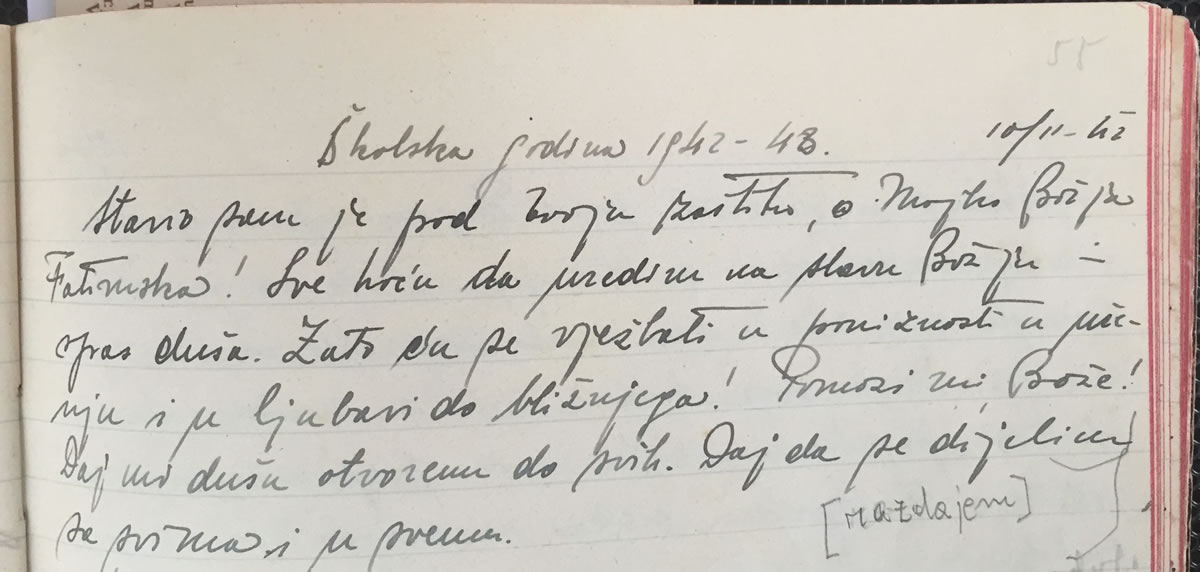 55
Školska godina 1942-43.
10/11-42
Stavio sam je pod Tvoju zaštitu, o Majko Božja
Fatimska! Sve hoću da uredim na slavu Božju i
spas duša. Zato ću se vježbati u poniznosti u
nju i u ljubavi do bližnjega! Pomozi mi, Bože!
Daj mi dušu otvorenu do svih. Daj da se dijelim
[razdajem]
sa svima i u svemu.